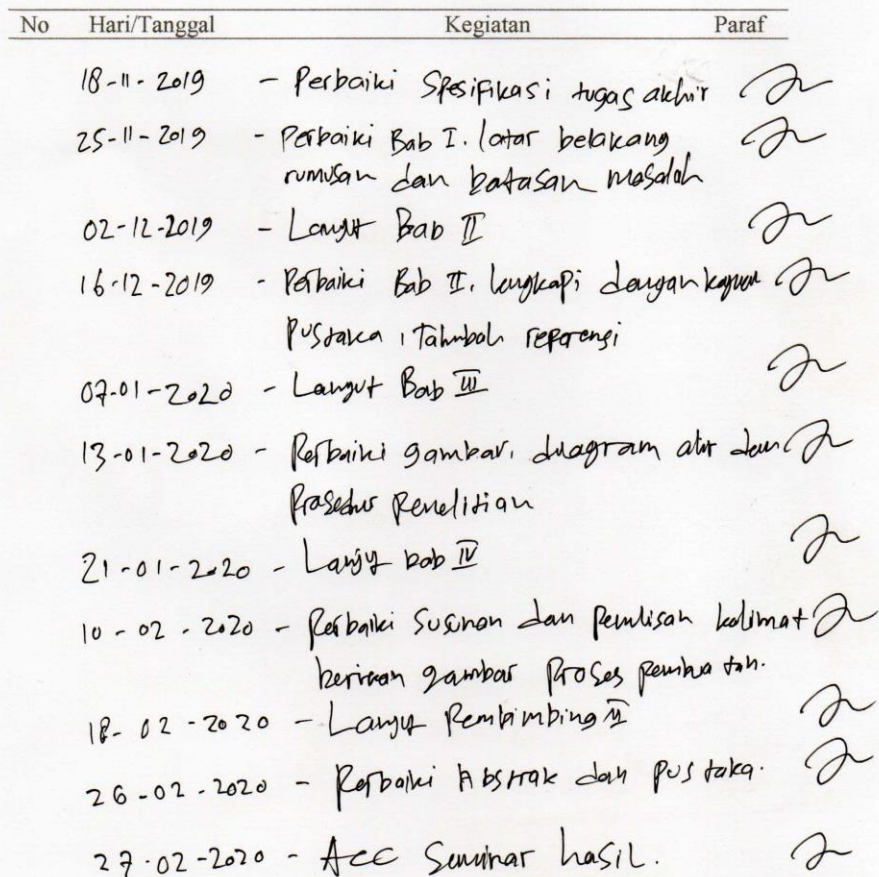 No Hari/Tanggal Kegiatan Paraf
18-11-2019 - Perbaiki Spesifikasi tugas akhir
25-11-2019 - Perbaiki Bab I. latar belakang
rumusan dan batasan masalah
02-12-2019 - Lanjut Bab II
16-12-2019 - Perbaiki Bab II, lengkapi dengan
Pustaka, Tambah referensi
07-01-2020 - Lanjut Bab III
13-01-2020 - Perbaiki gambar, diagram alir dan
Prosedur Penelitian
21-01-2020 - Lanjut bab IV
10-02-2020 - Perbaiki Susunan dan Penulisan kalimat
gambar Proses pembuatan.
18-02-2020 - Lanjut Pembimbing II
26-02-2020 - Perbaiki Abstrak dan Pustaka.
27-02-2020 - Acc Seminar hasil.